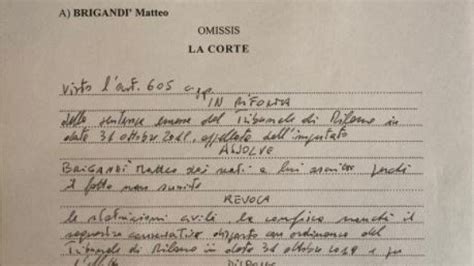 A) BRIGANDI' Matteo
OMISSIS
LA CORTE
Visto l'art. 605 cpp
IN RIFORMA
della sentenza emessa dal Tribunale di Milano in
data 31 ottobre appellata dall'imputato
ASSOLVE
BRIGANDI' Matteo dai reati a lui ascritti perché
il fatto non sussiste
REVOCA
le statuizioni civili, la confisca nonché il
sequestro conservativo disposto con ordinanza del
Tribunale di Milano in data 31 ottobre e